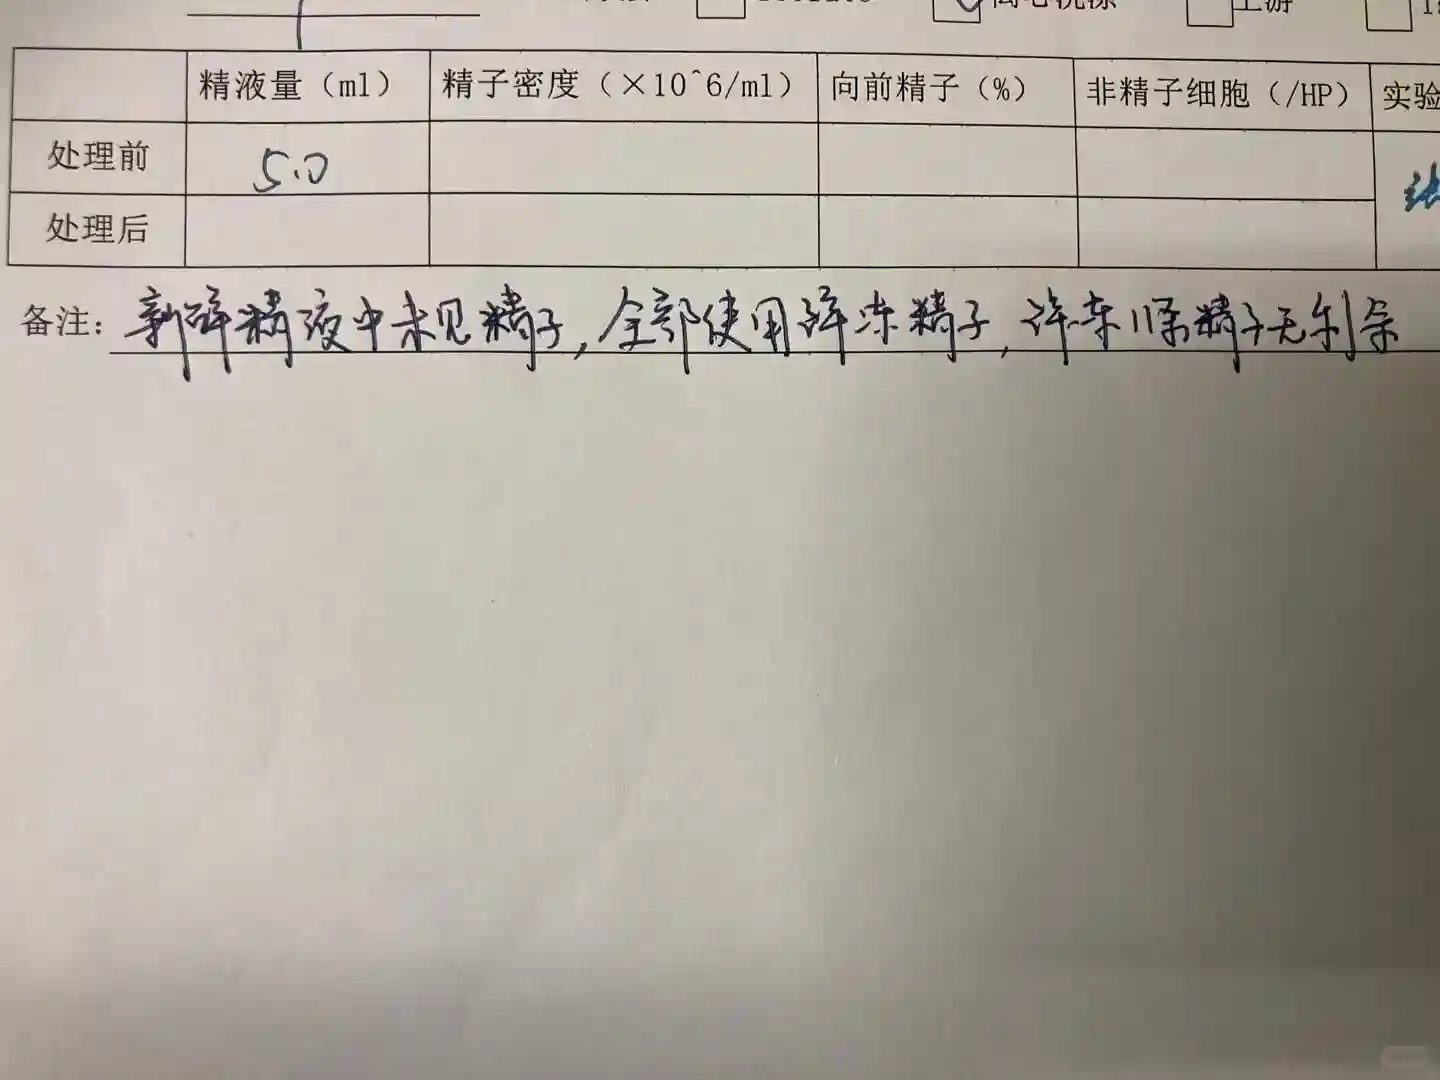 离心洗涤 上游
精液量（ml） 精子密度（×10^6/ml） 向前精子（%） 非精子细胞（/HP） 实验
处理前 5.0
处理后
备注：新鲜精液中未见精子，全部使用解冻精子，冻精子无剩余